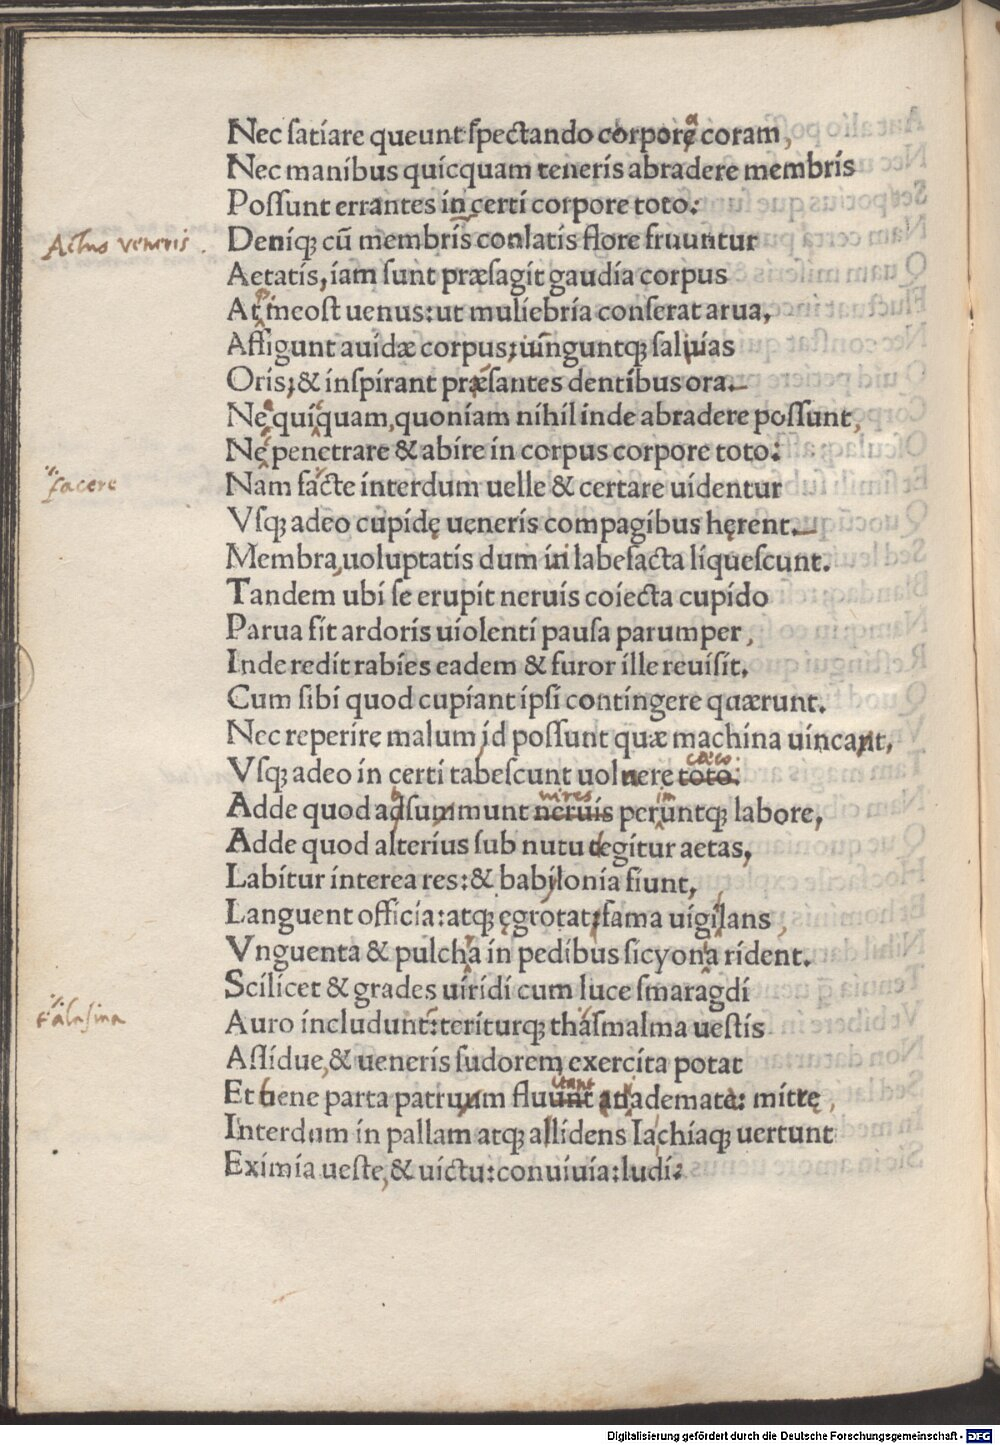 Nec satiare queunt spectando corporę coram,
a
Nec manibus quicquam teneris abradere membris
Possunt errantes in certi corpore toto:
Actus veneris.
Deniqꝫ cū membris conlatis flore fruuntur
Aetatis, iam sunt præsagit gaudia corpus
At ineost uenus: ut muliebria conserat arua,
Affigunt auidæ corpus; iūnguntqꝫ saliuas
Oris; & inspirant præsantes dentibus ora.
Ne quiquam, quoniam nihil inde abradere possunt,
Ne penetrare & abire in corpus corpore toto:
facere
Nam facte interdum uelle & certare uidentur
Vsqꝫ adeo cupidę ueneris compagibus hęrent.
Membra, uoluptatis dum in labefacta liquescunt.
Tandem ubi se erupit neruis coiecta cupido
Parua fit ardoris uiolenti pausa parumper,
Inde redit rabies eadem & furor ille reuisit,
Cum sibi quod cupiant ipsi contingere quærunt.
Nec reperire malum id possunt quæ machina uincant,
Vsqꝫ adeo in certi tabescunt uolnere toto:
cæco
Adde quod adsummunt neruis peruntqꝫ labore,
b vires im
Adde quod alterius sub nutu degitur aetas,
Labitur interea res: & babilonia fiunt,
Languent officia: atqꝫ ęgrotat; fama uigilans,
Vnguenta & pulcha in pedibus sicyona rident.
Scilicet & grades uiridi cum luce smaragdi
talasina
Auro includunt: teriturqꝫ thasmalma uestis
Assidue, & ueneris sudorem exercita potat
Et bene parta patruum fluunt anademata: mitrę,
Interdum in pallam atqꝫ allidens Iachiaqꝫ uertunt
Eximia ueste, & uictu: conuiuia: ludi:
Digitalisierung gefördert durch die Deutsche Forschungsgemeinschaft - DFG